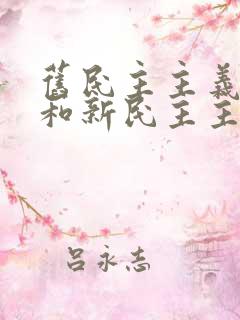 舊民主主義
和新民主主
吕永志